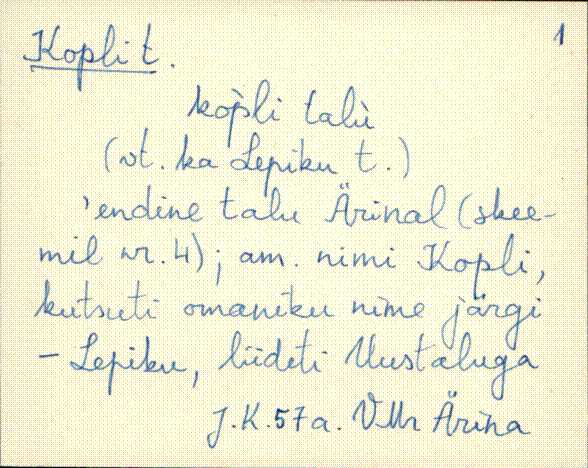 1
Kopli t.
kop̀li talù
(vt. ka Lepiku t.)
'endine talu Ärinal (skee-
mil nr. 4); am. nimi Kopli,
kutsuti omaniku nime järgi
- Lepiku, liideti Uustaluga
J.K. 57 a. VMr Ärina